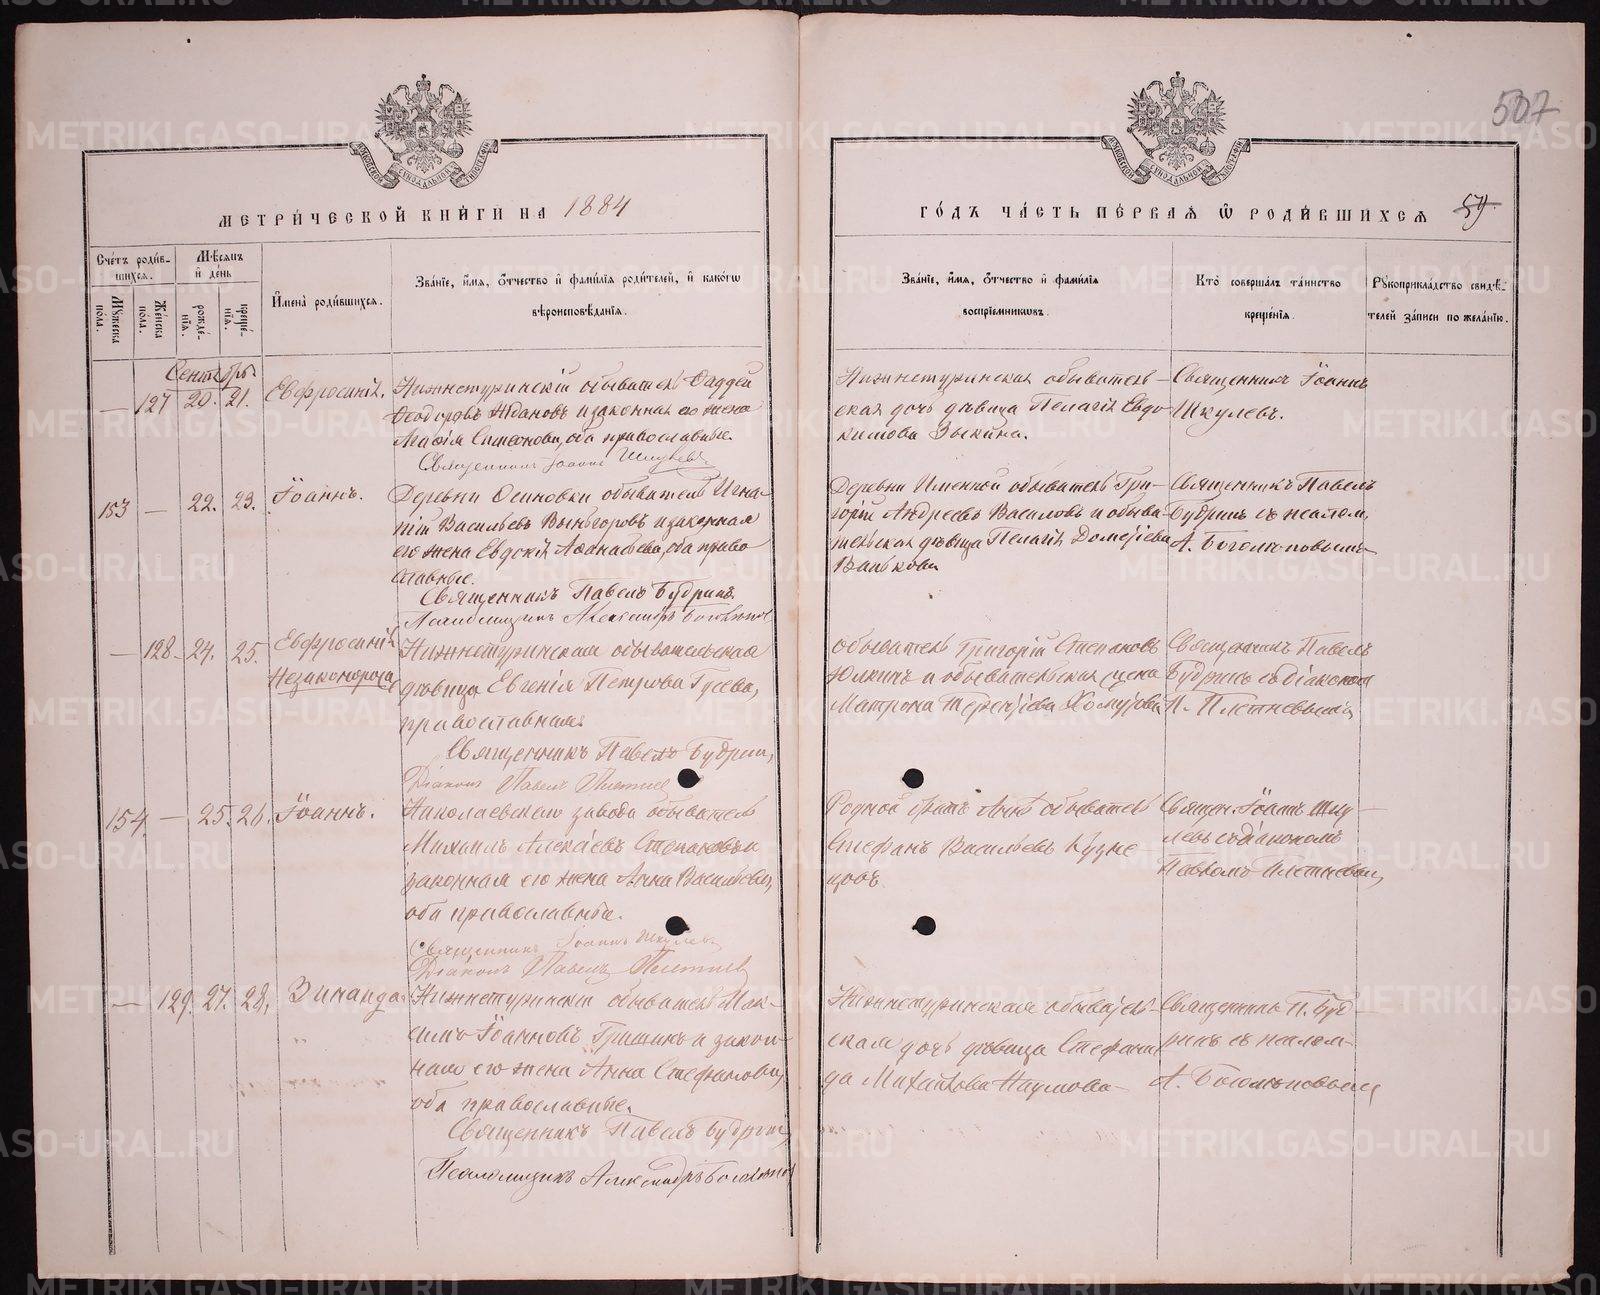 507
МЕТРИ́ЧЕСКОЙ КНИ́ГИ НА 1884
ГО́ДЪ ЧА́СТЬ ПЕ́РВАѦ Ѡ҆ РОДИ́ВШИХСѦ 59
Сче́тъ роди́в-
шихсѧ.
Мѣсѧцъ
и҆ де́нь
Мꙋжеска
пола.
Же́нска
пола.
рожде́-
нїѧ.
креще́-
нїѧ.
И҆мена̀ роди́вшихсѧ.
Зва́нїе, и҆́мѧ, ѻ҆́тчество и҆ фами́лїѧ роди́телей, и҆ како́гѡ
вѣроисповѣ́данїѧ.
Зва́нїе, и҆́мѧ, ѻ҆́тчество и҆ фами́лїѧ
воспрїе́мникѡвъ.
Кто̀ соверша́лъ та́инство
креще́нїѧ.
Рꙋкоприкла́дство свидѣ́-
телей за́писи по жела́нїю.
Сентябрь
— 127 20. 21. Евфросинія.
Нижнетуринскій обыватель Фаддей
Ѳеодоровъ Ждановъ и законная его жена
Марія Симеонова, оба православные.
Священникъ Іоаннъ Шкулевъ
Нижнетуринская обыватель-
ская дочь дѣвица Пелагія Евдо
кимова Зыкина.
Священникъ Іоаннъ
Шкулевъ.
153 — 22. 23. Іоаннъ.
Деревни Осиновки обыватель Игна-
тій Васильевъ и законная
его жена Евдокія Аѳанасьева, оба право
славные.
Священникъ Павелъ Будринъ.
Псаломщикъ Александръ Боголюповъ
Деревни Именной обыватель Гри-
горій Андреевъ Василовъ и обыва-
тельская дѣвица Пелагія Дометіева
Ванькова
Священникъ Павелъ
Будринъ съ псалом,
А. Боголюповымъ
— 128 24. 25. Евфросинія
Незаконорож
Нижнетуринская обывательская
дѣвица Евгенія Петрова Гусева,
православная.
Священникъ Павелъ Будрин,
Діаконъ Павелъ Плетнев
обыватель Григорій Степановъ
и обывательская жена
Матрона Терентіева
Священникъ Павелъ
Будринъ съ діакономъ
П. Плетневымъ
154. — 25. 26. Іоаннъ.
Николаевскаго завода обыватель
Михаилъ Алексѣевъ Степановъ и
законная его жена Анна Васильева,
оба православные.
Священникъ Іоаннъ Шкулевъ
Діаконъ Павелъ Плетнев
Родной братъ Анны обыватель
Стефанъ Васильевъ Кузне
цовъ.
Священ. Іоаннъ Шку
левъ съ діакономъ
Павломъ Плетневым,
— 129. 27. 28. Зинаида.
Нижнетуринскій обыватель Мак-
симъ Іоанновъ Гришинъ и закон-
ная его жена Анна Стефанова,
оба православные.
Священникъ Павелъ Будрин,
Псаломщикъ Александръ Боголюпов
Нижнетуринская обыватель-
ская дочь дѣвица Стефани
да Михайлова Наумова
Священникъ П. Буд-
ринъ съ псалом-
А. Боголюповым